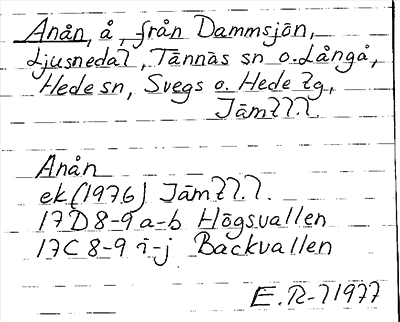 Anån, å, från Dammsjön,
Ljusnedal, Tännäs sn o. Långå,
Hede sn, Svegs o. Hede tg,
Jämtl.
Anån
ek (1976) Jämtl.
17D 8-9 a-b Högsvallen
17C 8-9 i-j Backvallen
E.R-71977